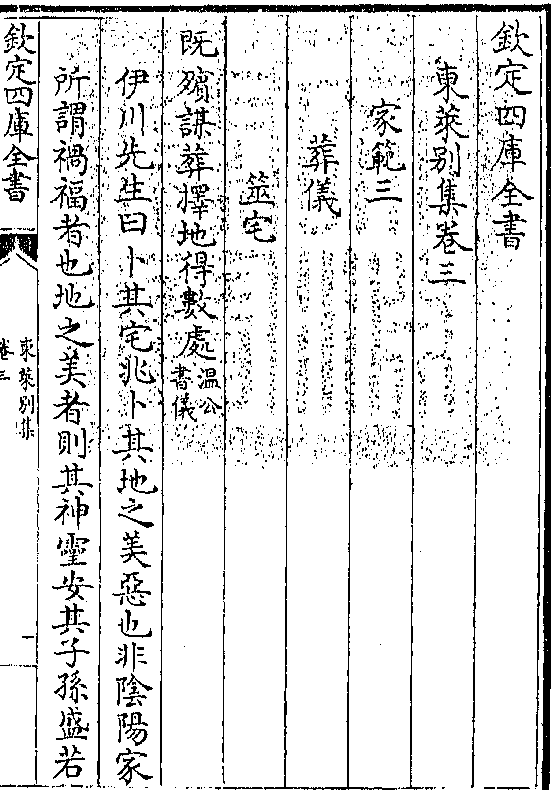 欽定四庫全書
東萊别集卷三
家範三
葬儀
筮宅
既殯謀葬擇地得數處温公書儀
伊川先生曰卜其宅兆卜其地之美惡也非陰陽家
所謂禍福者也地之美者則其神靈安其子孫盛若
欽定四庫全書
東萊别集
卷三
一